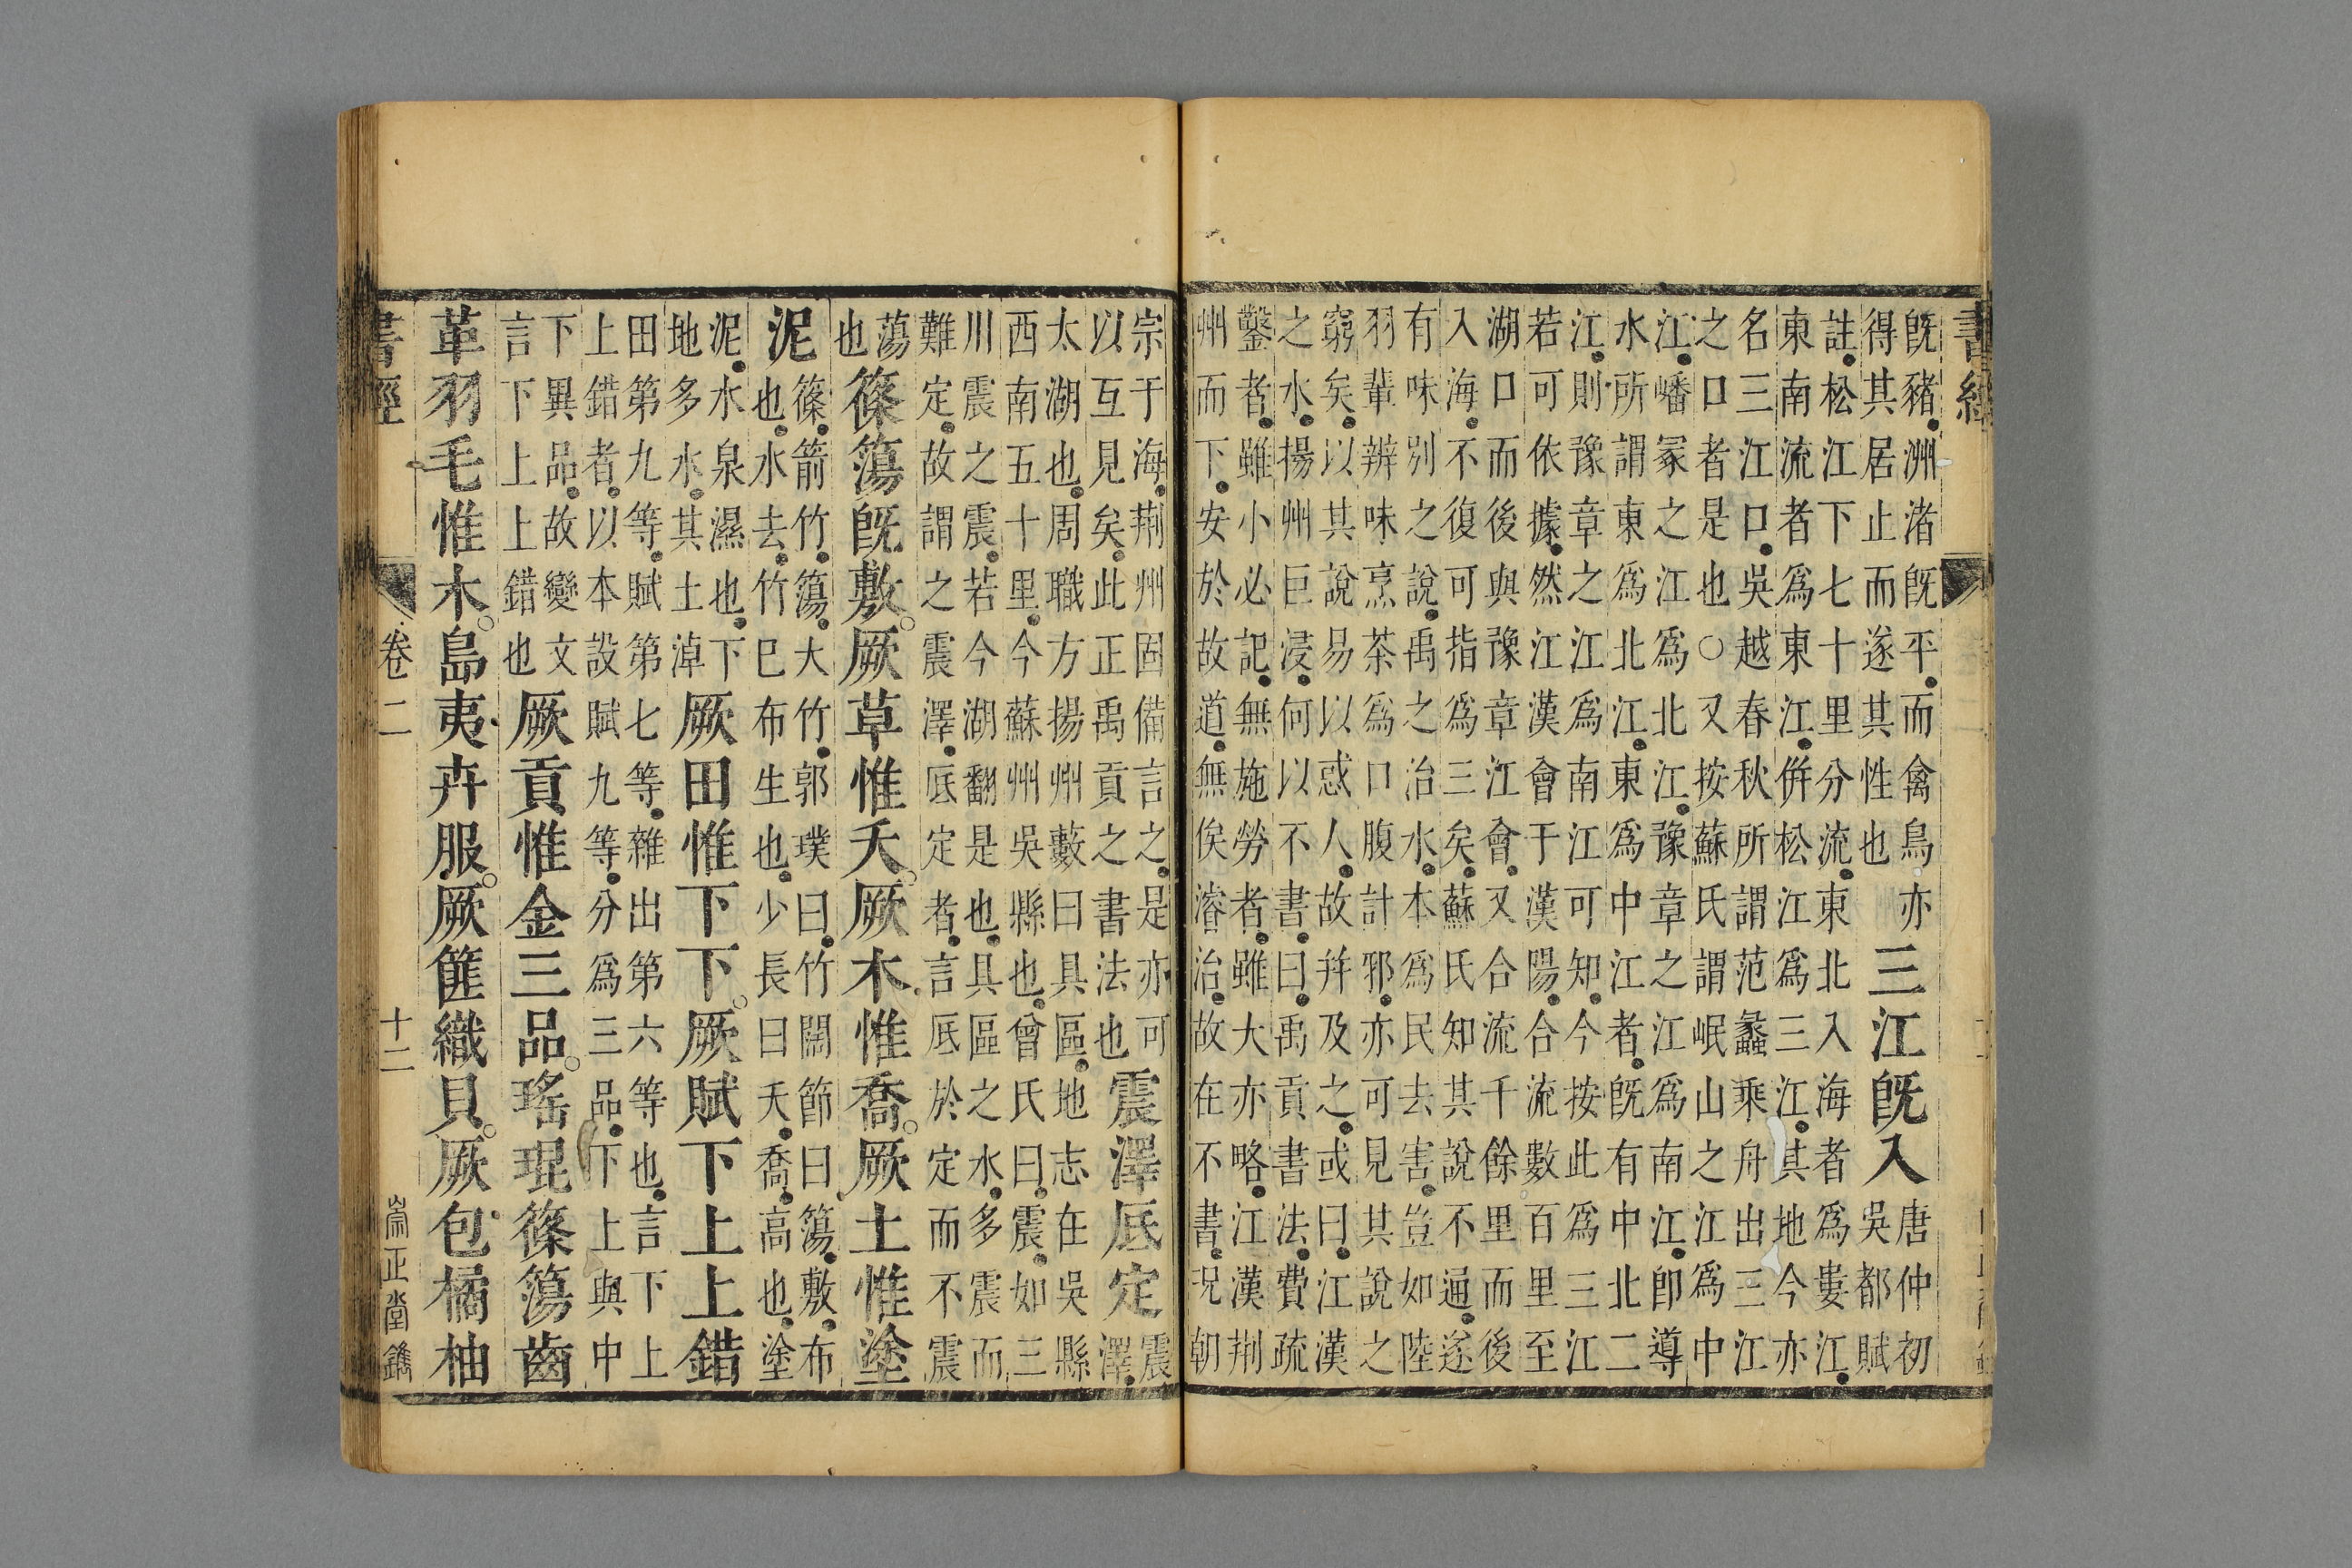 書經
既豬洲渚既平而禽鳥亦
得其居止而遂其性也
三江既入
唐仲初
吳都賦
註松江下七十里分流東北入海者爲婁江
東南流者爲東江併松江爲三江其地今亦
名三江口吳越春秋所謂范蠡乘舟出三江
之口者是也○又按蘇氏謂岷山之江爲中
江嶓冢之江爲北江豫章之江爲南江即導
水所謂東爲北江東爲中江者既有中北二
江則豫章之江爲南江可知今按此爲三江
若可依據然江漢會于漢陽合流數百里至
湖口而後與豫章江會又合流千餘里而後
入海不復可指爲三矣蘇氏知其說不通遂
有味別之說禹之治水本爲民去害豈如陸
羽輩辨味烹茶爲口腹計邪亦可見其說之
窮矣以其說易以惑人故幷及之或曰江漢
之水揚州巨浸何以不書曰禹貢書法費疏
鑿者雖小必記無施勞者雖大亦略江漢荆
州而下安於故道無俟濬治故在不書況朝
宗于海荆州固備言之是亦可
以互見矣此正禹貢之書法也
震澤底定
震
澤
太湖也周職方揚州藪曰具區地志在吳縣
西南五十里今蘇州吳縣也曾氏曰震如三
川震之震若今湖翻是也具區之水多震而
難定故謂之震澤底定者言底於定而不震
蕩
也
篠簜既敷厥草惟夭厥木惟喬厥土惟塗
泥
篠箭竹簜大竹郭璞曰竹闊節曰簜敷布
也水去竹已布生也少長曰夭喬高也塗
泥水泉濕也下
地多水其土淖
厥田惟下下厥賦下上上錯
田第九等賦第七等雜出第六等也言下上
上錯者以本設賦九等分爲三品下上與中
下異品故變文
言下上上錯也
厥貢惟金三品瑤琨篠簜齒
革羽毛惟木島夷卉服厥篚織貝厥包橘柚
書經
卷二
十二
崇正堂鐫